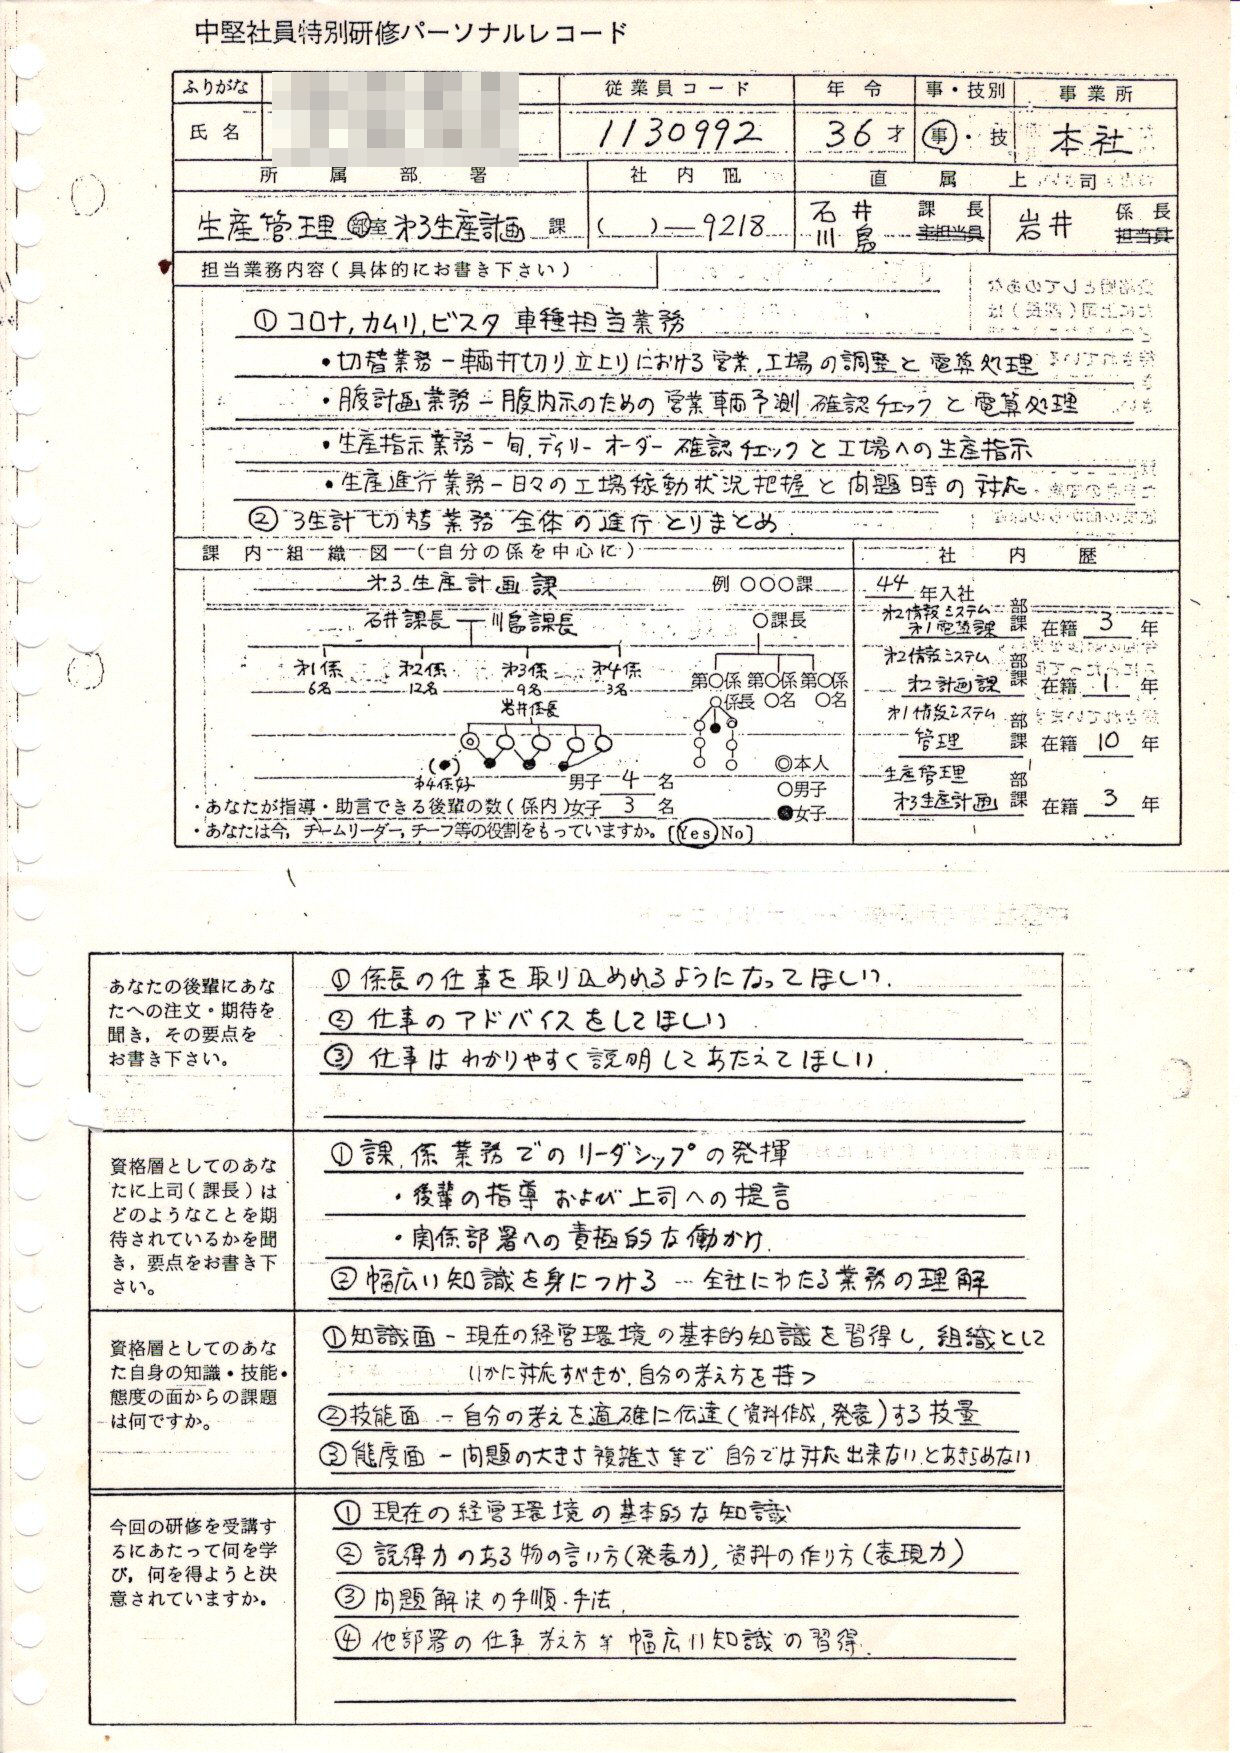 中堅社員特別研修パーソナルレコード
ふりがな 従業員コード 年令 事・技別 事業所
氏名 1130992 36才 事・技 本社
所属部署 社内TEL 直属上司
生産管理 部室 オ3生産計画 課 ( )—9218 石井 川島 課長 主担当員 岩井 係長 担当員
担当業務内容(具体的にお書き下さい)
① コロナ,カムリ,ビスタ 車種担当業務
・切替業務－車両打切り立上りにおける営業,工場の調整と電算処理
・月度計画業務－月度内示のための営業車両予測 確認チェックと電算処理
・生産指示業務－旬,デイリーオーダー確認チェックと工場への生産指示
・生産進行業務－日々の工場稼動状況把握と問題時の対応
② 3生計 切替業務 全体の進行とりまとめ
課内組織図(自分の係を中心に) 社内歴
オ3生産計画課 例 ○○○課
石井課長 川島課長 ○課長
オ1係 オ2係 オ3係 オ4係
6名 12名 9名 3名
岩井係長
第○係 第○係 第○係
○係長 ○名 ○名
◎本人
○男子
●女子
男子 4 名
・あなたが指導・助言できる後輩の数(係内)女子 3 名
・あなたは今,チームリーダー,チーフ等の役割をもっていますか。〔Yes No〕
44 年入社
オ2情報システム 部 オ1電算課 課 在籍 3 年
オ2情報システム 部 オ2計画課 課 在籍 1 年
オ1情報システム 部 管理 課 在籍 10 年
生産管理 部 オ3生産計画 課 在籍 3 年
あなたの後輩にあな
たへの注文・期待を
聞き,その要点を
お書き下さい。
① 係長の仕事を取り込めれるようになってほしい.
② 仕事のアドバイスをしてほしい
③ 仕事はわかりやすく説明してあたえてほしい.
資格層としてのあな
たに上司(課長)は
どのようなことを期
待されているかを聞
き,要点をお書き下
さい。
① 課,係業務でのリーダシップの発揮
・後輩の指導および上司への提言
・関係部署への責極的な働かけ.
② 幅広い知識を身につける … 全社にわたる業務の理解
資格層としてのあな
た自身の知識・技能・
態度の面からの課題
は何ですか。
① 知識面－現在の経営環境の基本的知識を習得し,組織として
いかに対応すべきか,自分の考え方を持つ
② 技能面－自分の考えを適確に伝達(資料作成,発表)する技量
③ 態度面－問題の大きさ複雑さ等で自分では対応出来ないとあきらめない
今回の研修を受講す
るにあたって何を学
び,何を得ようと決
意されていますか。
① 現在の経営環境の基本的な知識
② 説得力のある物の言い方(発表力),資料の作り方(表現力)
③ 問題解決の手順・手法.
④ 他部署の仕事 考え方等 幅広い知識の習得.